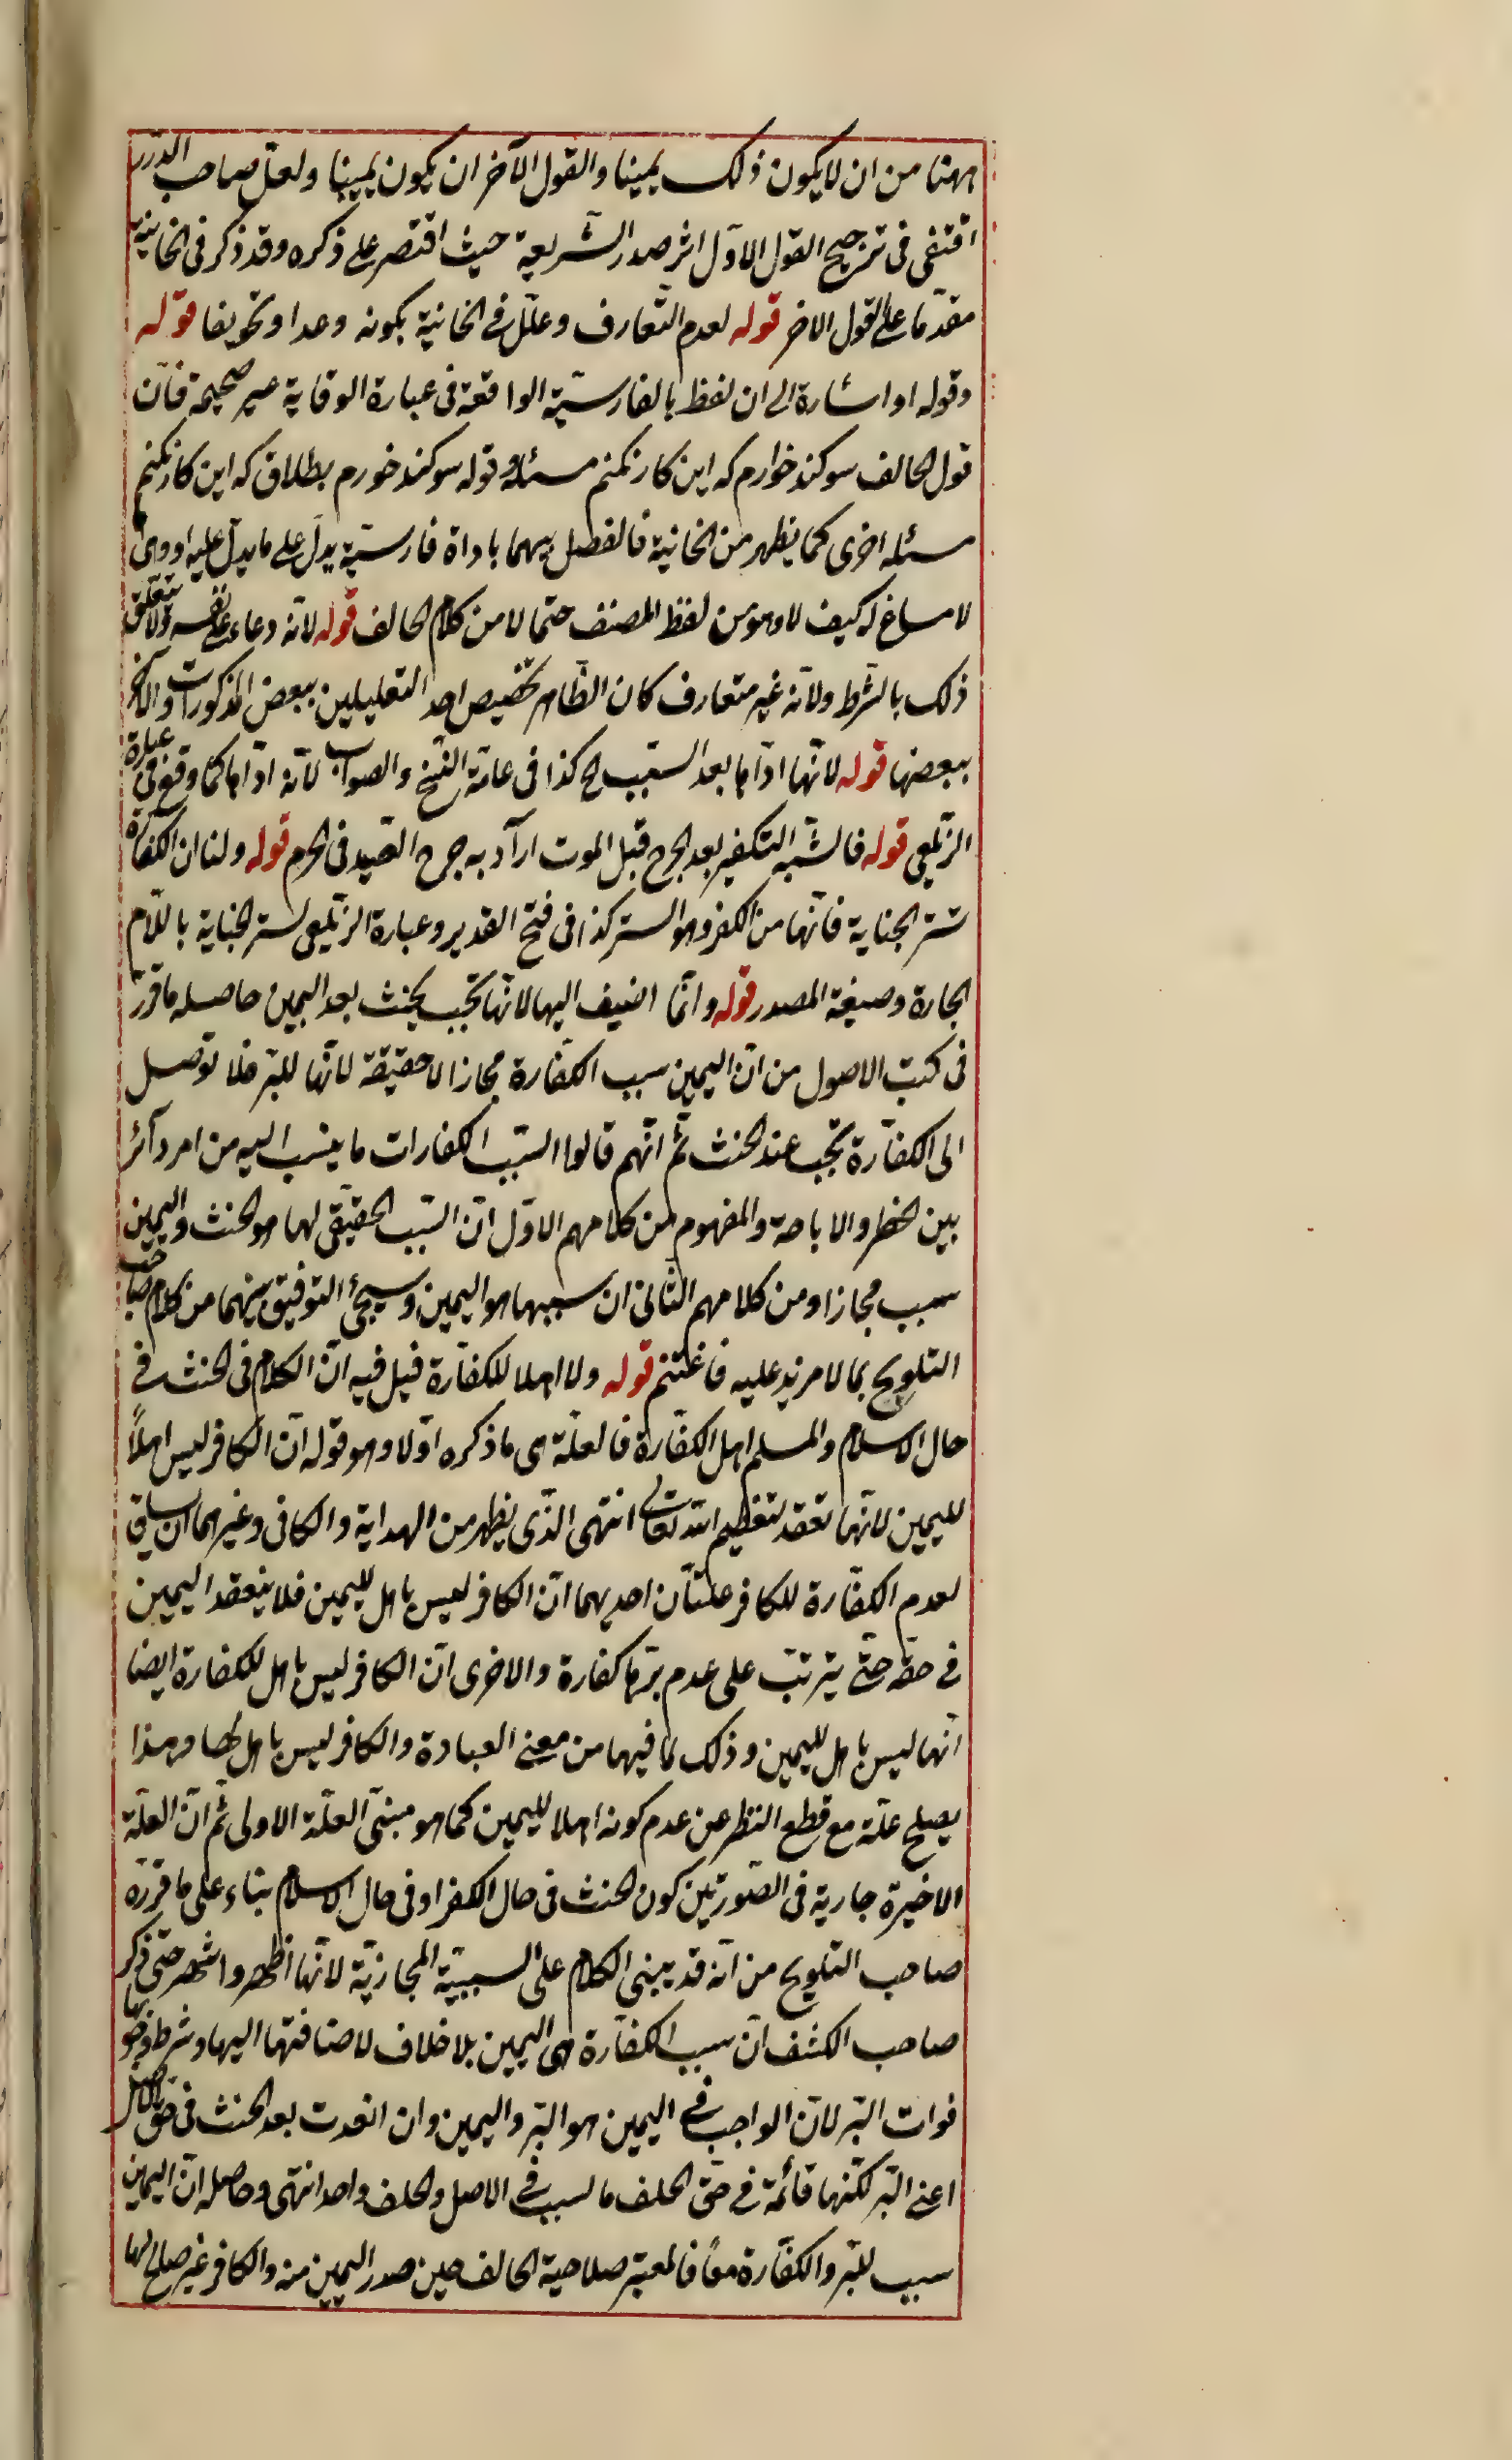 ههنا من ان لا يكون ذلك يمينا والقول الآخر ان يكون يمينا ولعل صاحب الدرر
اقتفى فى ترجيح القول الاول اثر صدر الشريعة حيث اقتصر على ذكره وقد ذكر فى الخانية
مقدّما على القول الاخر قوله لعدم التعارف وعلل فى الخانية بكونه وعدا وتخويفا قوله
وقوله او اشارة الى ان لفظ بالفارسيّة الواقعة فى عبارة الوقاية غير صحيحة فان
قول الحالف سوكند خوارم كه اين كار نكنم مسئلة وقوله سوكند خورم بطلاق كه اين كار نكنم
مسئله اخرى كما يظهر من الخانية فالفصل بينهما باداة فارسيّة يدل على ما يدل عليه او وى
لا مساغ له كيف لا وهو من لفظ المصنف حتما لا من كلام الحالف قوله لانه دعاء على نفسه ولا يتعلق
ذلك بالشرط ولانه غير متعارف كان الظاهر تخصيص احد التعليلين ببعض المذكورات والآخر
ببعضها قوله لانها اداها بعد السبب الخ كذا فى عامّة النسخ والصواب لانه اداها كما وقع فى عبارة
الزيلعى قوله فاشبه التكفير بعد الجرح قبل الموت اراد به جرح الصيد فى الحرم قوله ولنا ان الكفارة
تستر الجناية فانها من الكفر وهو الستر كذا فى فتح القدير وعبارة الزيلعى لستر الجناية باللام
الجارة وصيغة المصدر قوله وانما اضيف اليها لانها تجب بحنث بعد اليمين حاصله ما قرر
فى كتب الاصول من ان اليمين سبب الكفارة مجازا لا حقيقة لانها للبر فلا توصل
الى الكفارة تجب عند الحنث ثم انهم قالوا السبب الكفارات ما ينسب اليه من امر دائر
بين الحظر والاباحة والمفهوم من كلامهم الاول ان السبب الحقيقى لها هو الحنث واليمين
سبب مجازا ومن كلامهم الثانى ان سببها هو اليمين وسيجئ التوفيق بينهما من كلام صاحب
التلويح بما لا مزيد عليه فاغتنم قوله ولا اهلا للكفارة قيل فيه ان الكلام فى الحنث فى
حال الاسلام والمسلم اهل الكفارة فالعلة هى ما ذكره اولا وهو قوله ان الكافر ليس اهلاً
لليمين لانها تعقد لتعظيم الله تعالى انتهى الذى يظهر من الهداية والكافى وغيرهما ان
لعدم الكفارة للكافر علتان احديهما ان الكافر ليس باهل لليمين فلا ينعقد اليمين
فى حقه حتى يترتب على عدم برّها كفارة والاخرى ان الكافر ليس باهل للكفارة ايضا
انها ليس باهل لليمين وذلك لما فيها من معنى العبادة والكافر ليس باهل لها وهذا
يصلح علة مع قطع النظر عن عدم كونه اهلا لليمين كما هو مبنى العلّة الاولى ثم ان العلّة
الاخيرة جارية فى الصورتين كون الحنث فى حال الكفر او فى حال الاسلام بناء على ما قرره
صاحب التلويح من انه قد يبنى الكلام على السببيّة المجازيّة لانها اظهر واشهر حتى ذكر
صاحب الكشف ان سبب الكفارة هى اليمين بلا خلاف لاضافتها اليها وشرط وجوبها
فوات البر لان الواجب فى اليمين هو البر واليمين وان انعدت بعد الحنث فى حق الاصل
اعنى البر لكنها قائمة فى حق الخلف فالسبب فى الاصل والخلف واحد انتهى وحاصله ان اليمين
سبب للبر والكفارة معاً فالمعتبر صلاحية الحالف حين صدر اليمين منه والكافر غير صالح لها